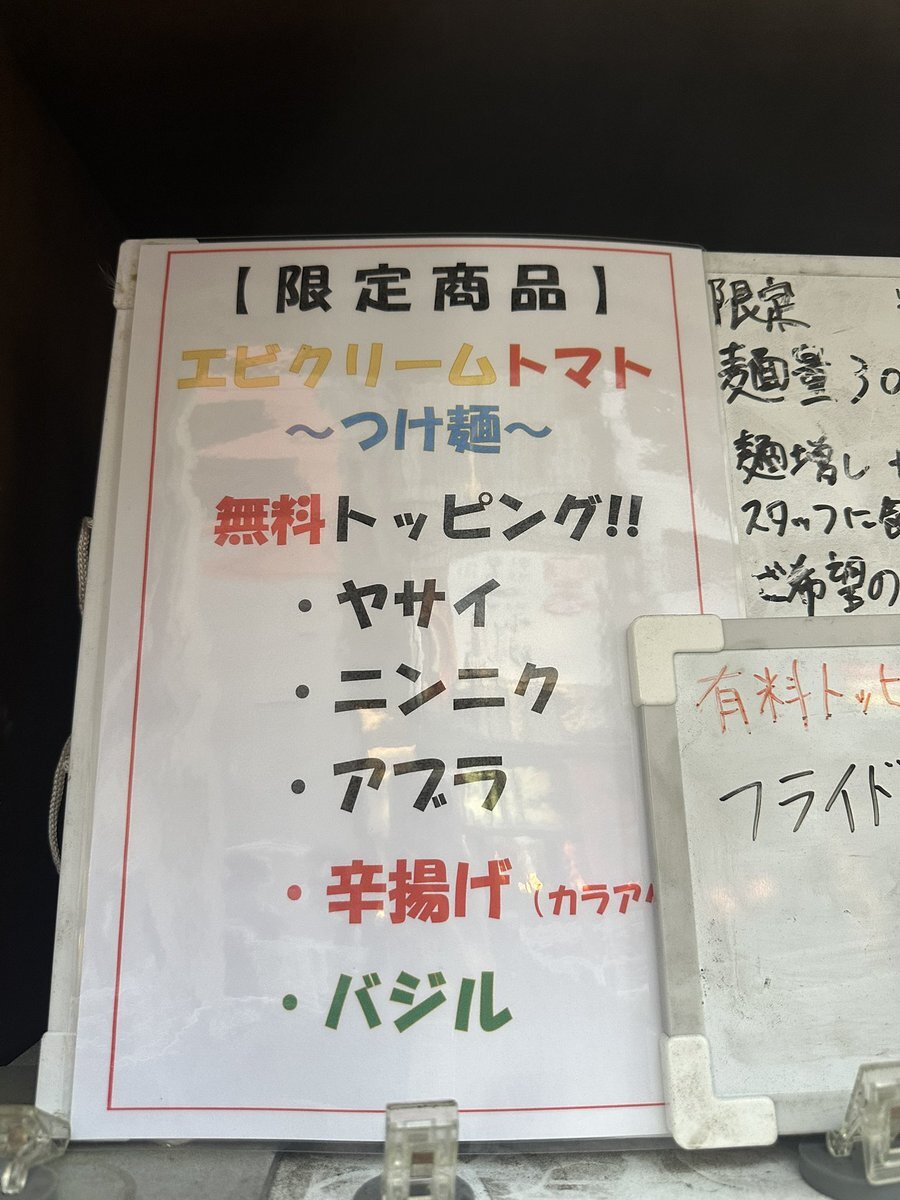 【限定商品】
エビクリームトマト
～つけ麺～
無料トッピング!!
・ヤサイ
・ニンニク
・アブラ
・辛揚げ（カラアゲ
・バジル
限定
麺量 30
麺増し
スタッフに
ご希望の
有料トッピ
フライド